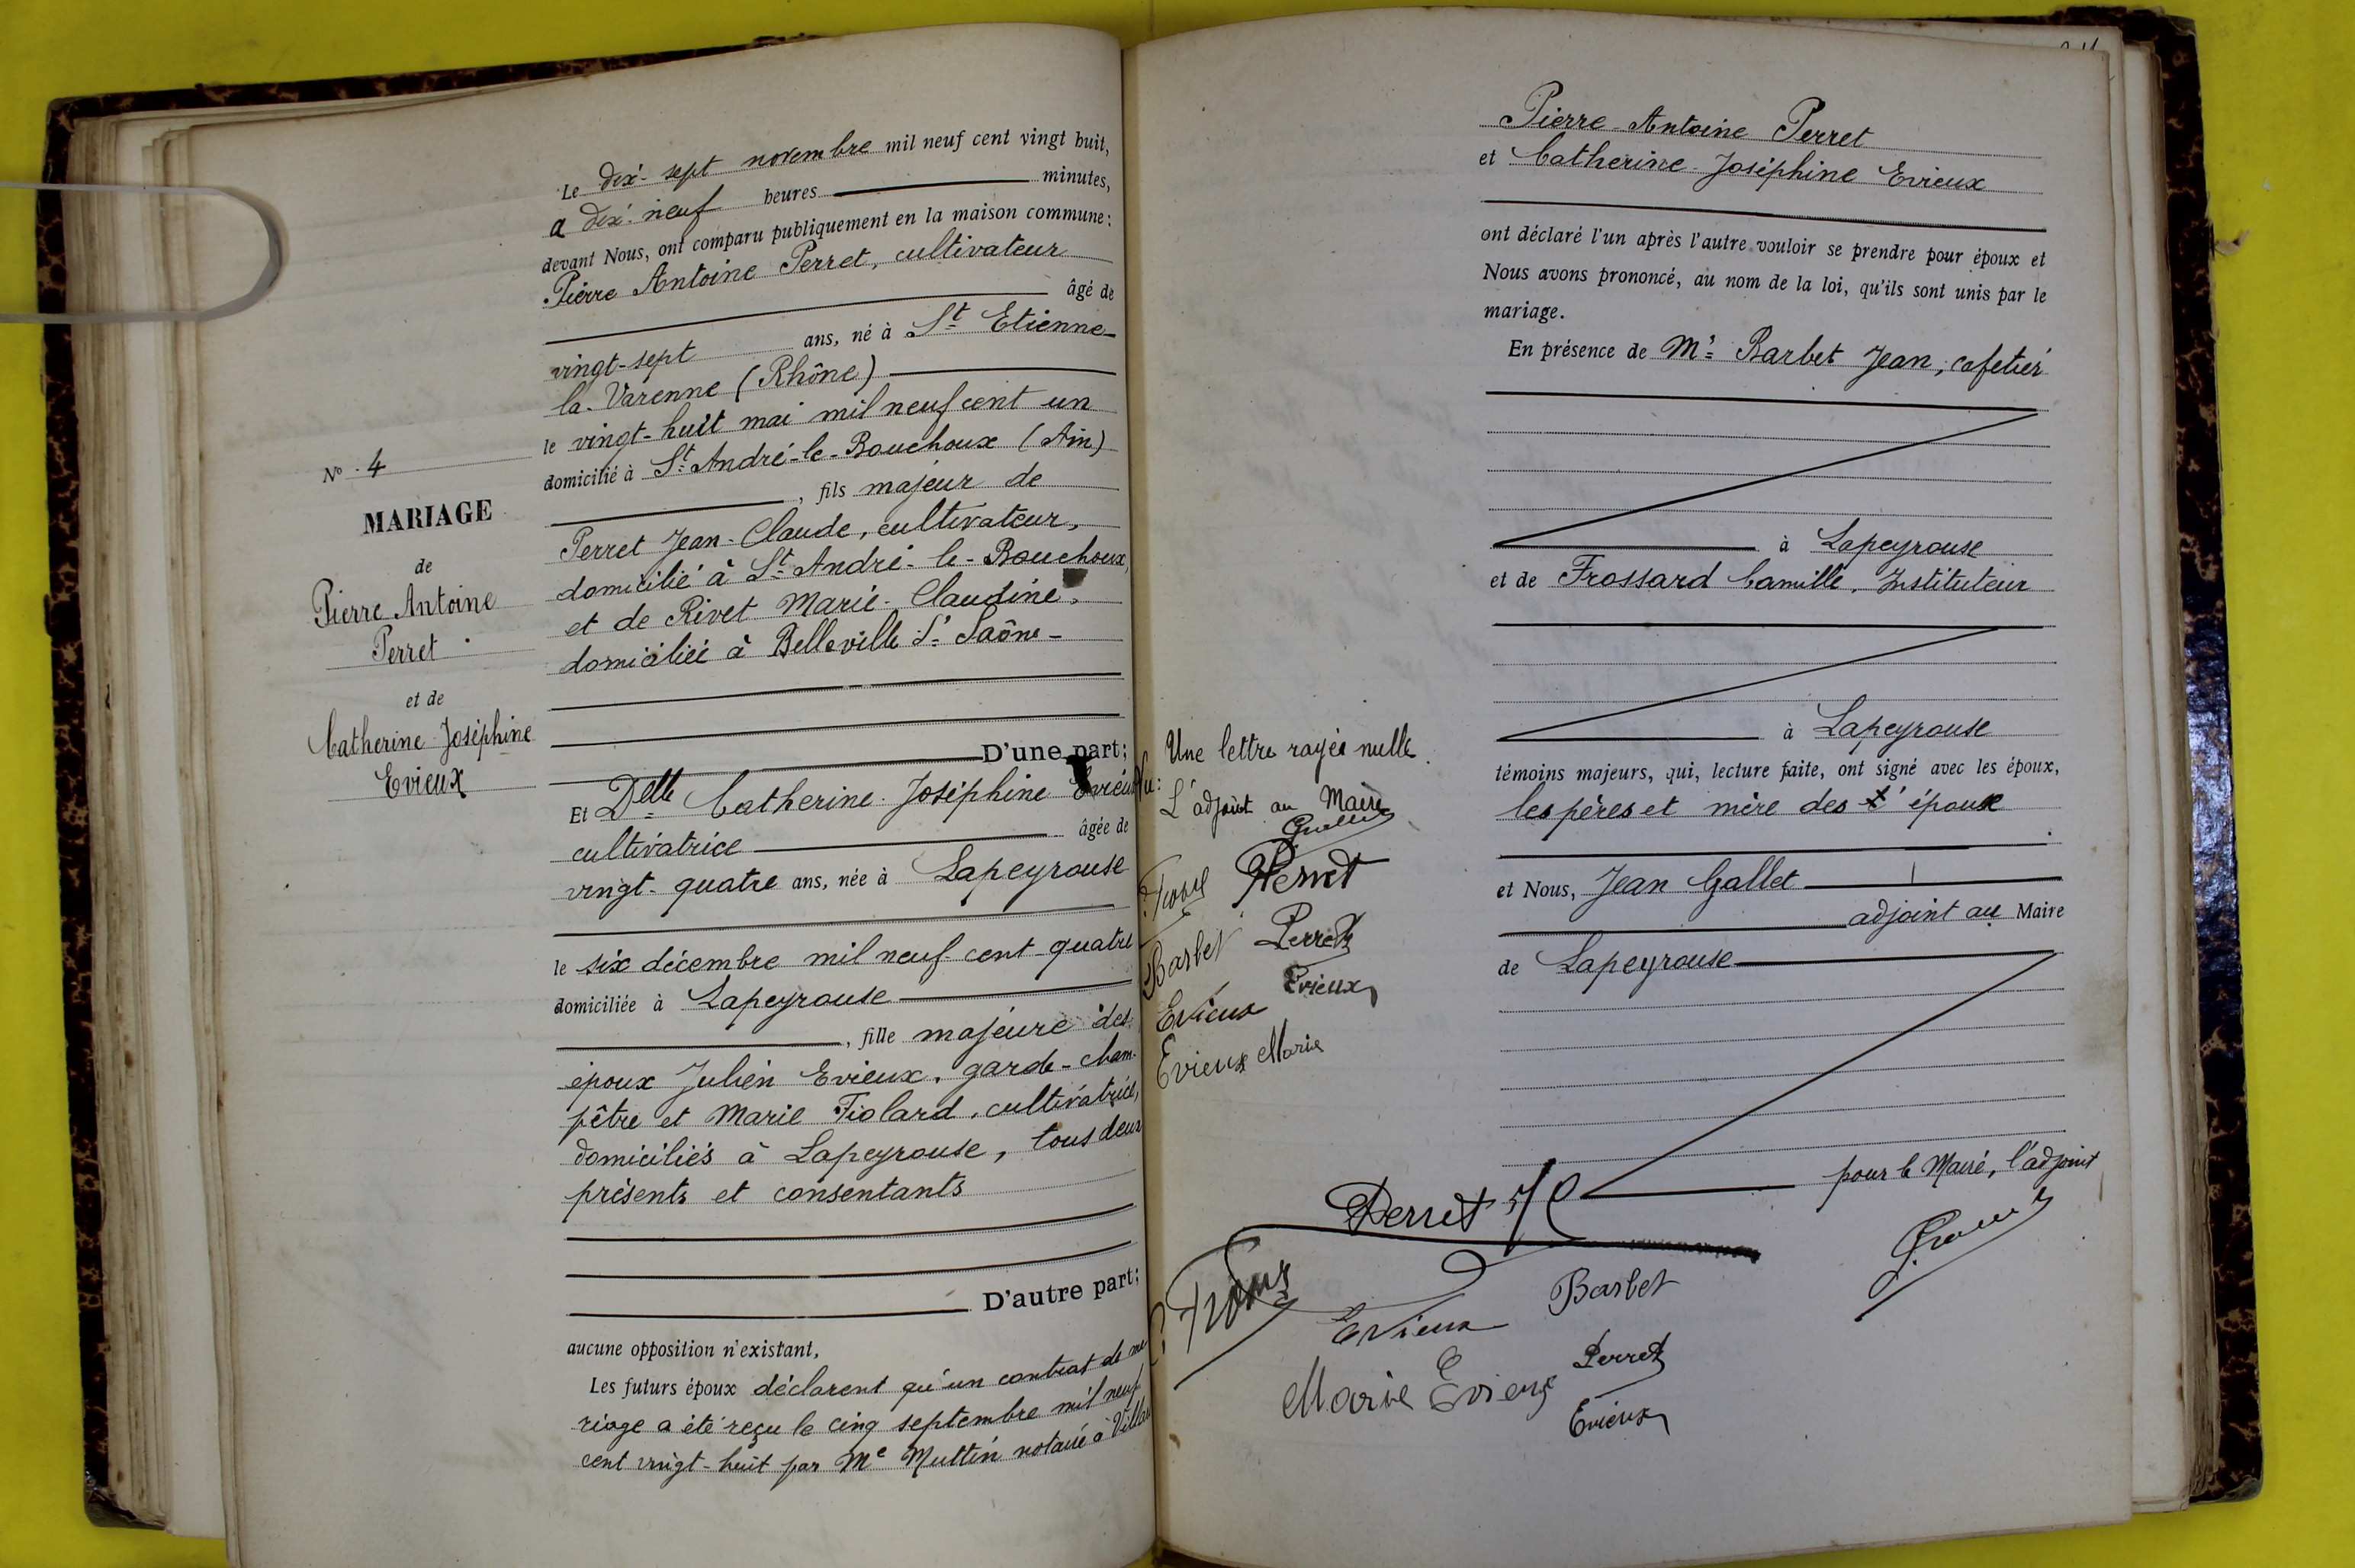 N° 4
MARIAGE
de
Pierre Antoine
Perret
et de
Catherine Joséphine
Evieux
Le dix-sept novembre mil neuf cent vingt huit,
à dix-neuf heures minutes,
devant Nous, ont comparu publiquement en la maison commune:
Pierre Antoine Perret, cultivateur
âgé de
vingt-sept ans, né à St Etienne-
la-Varenne (Rhône)
le vingt-huit mai mil neuf cent un
domicilié à St André-le-Bouchoux (Ain)
, fils majeur de
Perret Jean-Claude, cultivateur,
domicilié à St André-le-Bouchoux,
et de Rivet Marie-Claudine,
domiciliée à Belleville s/ Saône-
D'une part;
Et Delle Catherine Joséphine Evieux
cultivatrice âgée de
vingt-quatre ans, née à Lapeyrouse
le six décembre mil neuf cent quatre
domiciliée à Lapeyrouse
, fille majeure des
époux Julien Evieux, garde-cham-
pêtre et Marie Tiolard, cultivatrice,
domiciliés à Lapeyrouse, tous deux
présents et consentants
D'autre part;
aucune opposition n'existant,
Les futurs époux déclarent qu'un contrat de ma
riage a été reçu le cinq septembre mil neuf
cent vingt-huit par Me Muttin notaire à Villars
Pierre Antoine Perret
et Catherine Joséphine Evieux
ont déclaré l'un après l'autre vouloir se prendre pour époux et
Nous avons prononcé, au nom de la loi, qu'ils sont unis par le
mariage.
En présence de Mr Barbet Jean, cafetier
à Lapeyrouse
et de Frossard Camille, Instituteur
à Lapeyrouse
témoins majeurs, qui, lecture faite, ont signé avec les époux,
les pères et mère des t' époux
et Nous, Jean Gallet
adjoint au Maire
de Lapeyrouse
Une lettre rayée nulle.
L'adjoint au Maire
Perret
Barbet Perret
Evieux
Evieux
Evieux Marie
pour le Maire, l'adjoint
Perret
Barbet
Evieux
Perret
Marie Evieux
Evieux